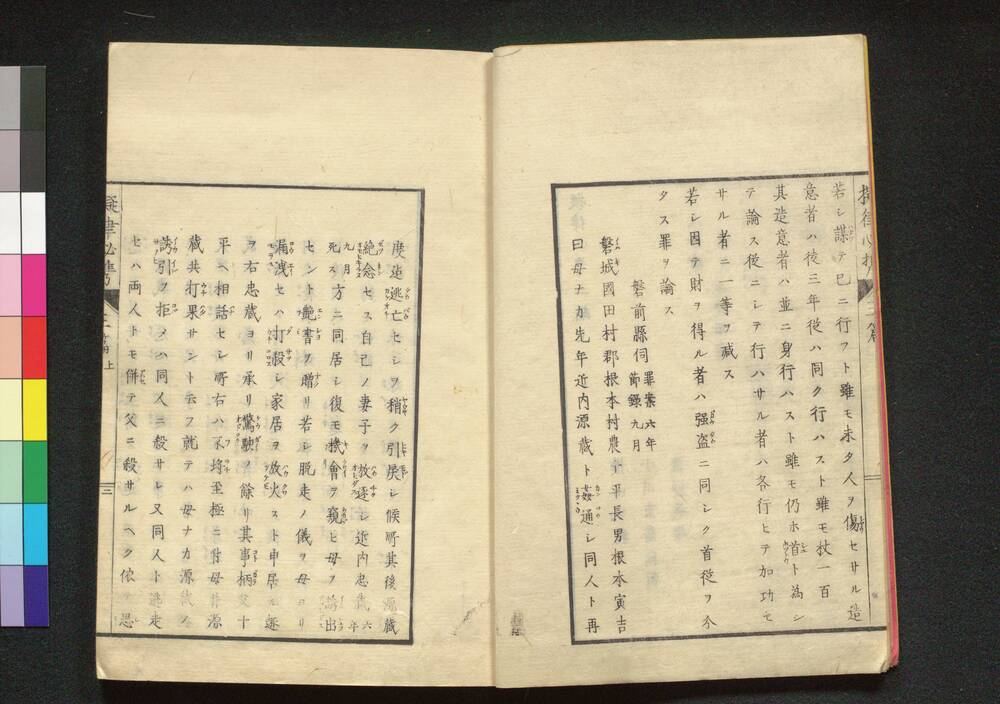 若シ謀テ已ニ行フト雖モ未タ人ヲ傷セサル造
意者ハ徒三年從ハ同ク行ハスト雖モ杖一百
其造意者ハ並ニ身行ハスト雖モ仍ホ首ト為シ
テ論ス從ニシテ行ハサル者ハ各行ヒテ加功セ
サル者ニ一等ヲ減ス
若シ因テ財ヲ得ル者ハ强盗ニ同シク首從ヲ分
タス罪ヲ論ス
磐前縣伺 罪案六年
節錄九月
磐城國田村郡根本村農十平長男根本寅吉
曰母ナカ先年近内源藏ト姦通シ同人ト再
度迯逃亡セシヲ稍ク引戻シ候所其後源藏
絶念セス自己ノ妻子ヲ放逐シ近内忠藏六年
九月死方ニ同居シ復モ機會ヲ窺ヒ母ヲ誘出
セント艶書ヲ贈リ若シ脱走ノ儀ヲ母ヨリ
漏洩セハ打殺シ家居ヲ放火スト申居ル趣
ヲ右忠藏ヨリ承リ驚駭ノ餘リ其事柄父十
平ヘ相話セシ所右ハ不埒至極ニ付母并源
藏共打果サント云フ就テハ母ナカ源藏ノ
誘引ヲ拒メハ同人ニ殺サレ又同人ト逃走
セハ両人トモ併テ父ニ殺サルヘク依テ思
擬律必携
三